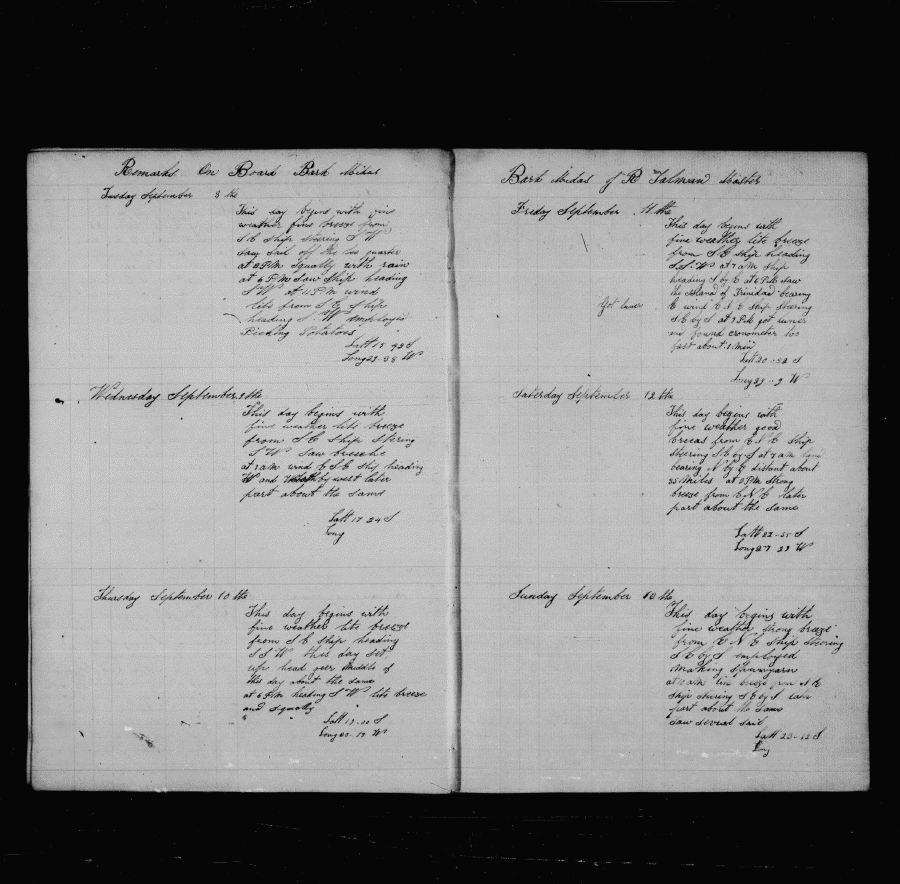 Remarks On Board Bark Midas
Tuesday September 8 th
This day begins with fine
weather fine breeze from
S E Ship steering S W
saw sail off the lee quarter
at 2 P.M squally with rain
at 6 P M saw Ship heading
S W at 11 P M wind
lite from S E Ship
heading S W employed
Picking Potatoes
Latt 15 42 S
Long 29-38 W
Wednesday September 9 th
This day begins with
fine weather lite breeze
from S E Ship Stering
S W Saw
at 7 A M wind E S E Ship heading
W and by west later
part about the same
Latt 17 24 S
Long
Thursday September 10 th
This day begins with
fine weather lite breeze
from S E ship heading
S S W this day set
up head over Middle of
this day about the same
at 6 P.M heading S W lite breeze
and squally
Latt 19-00 S
Long 30-19 W
Bark Midas of R Talman Master
Friday September 11 the
This day begins with
fine weather lite breeze
from S E ship heading
S S W at 7 A M Ship
heading S by E at 6 P.M saw
the Island of Trinidad bearing
E wind E N E Ship Steering
Got luner
S E by S at 9 P.M got luner
and found cronometer too
fast about 2 Min
Latt 20-52 S
Long 29-9 W
Saterday September 12 the
This day begins with
fine weather good
breeas from E N E Ship
Steering S E by S at 7 A M
bearing N by E distant about
25 Miles at 2 P.M Strong
breeze from E N E later
part about the same
Latt 22-35 S
Long 27 29 W
Sunday September 13 the
This day begins with
fine weather strong breeze
from E N E Ship Steering
S E by S employed
Making Spunnyarn
at 12 A M lite breeze from N E
Ship stering S E by S later
part about the same
saw several sail
Latt 23-12 S
Long